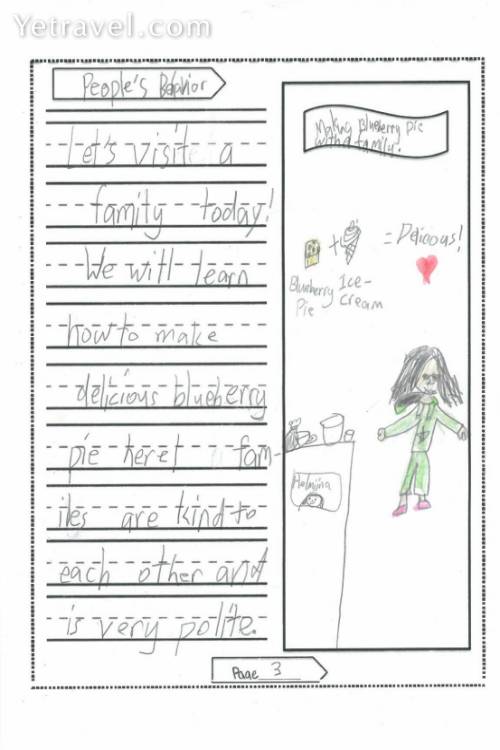 Yetravel.com
People's Behavior
Let's visit a
family today!
We will learn
how to make
delicious blueberry
pie here! fam-
ilies are kind to
each other and
is very polite.
Making Blueberry Pie
with a family!
+ = Delicious!
Blueberry Ice-
Pie cream
Helmiina
Page 3